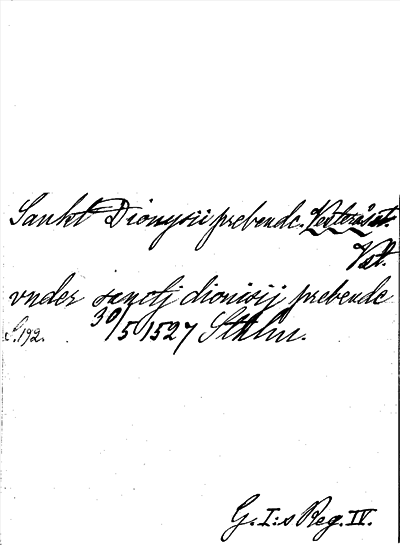 Sankt Dionysii prebende. Västerås st.
Vstl.
vnder sanctj dionisij prebende
S. 192. 30/5 1527 Sthlm.
G. I:s Reg. IV.